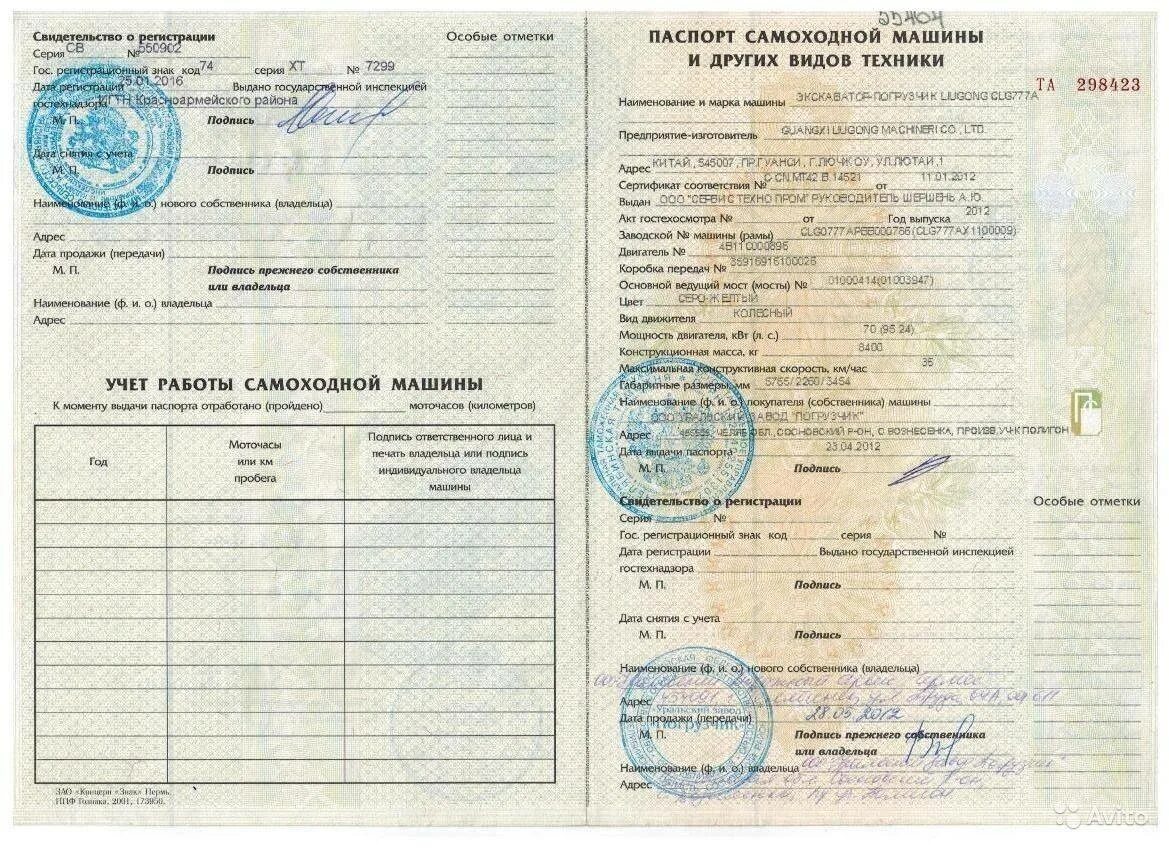 Свидетельство о регистрации
Особые отметки
Серия СВ № 550902
Гос. регистрационный знак код 74 серия ХТ № 7299
Дата регистрации 25.01.2016 Выдано государственной инспекцией
гостехнадзора ИГТН Красноармейского района
М. П. Подпись
Дата снятия с учета
М. П. Подпись
Наименование (ф. и. о.) нового собственника (владельца)
Адрес
Дата продажи (передачи)
М. П. Подпись прежнего собственника
или владельца
Наименование (ф. и. о.) владельца
Адрес
УЧЕТ РАБОТЫ САМОХОДНОЙ МАШИНЫ
К моменту выдачи паспорта отработано (пройдено) моточасов (километров)
Год
Моточасы
или км
пробега
Подпись ответственного лица и
печать владельца или подпись
индивидуального владельца
машины
ЗАО «Концерн «Знак» Пермь.
ППФ Гознака, 2001, 173950.
55404
ПАСПОРТ САМОХОДНОЙ МАШИНЫ
И ДРУГИХ ВИДОВ ТЕХНИКИ
ТА 298423
Наименование и марка машины ЭКСКАВАТОР-ПОГРУЗЧИК LIUGONG CLG777A
Предприятие-изготовитель GUANGXI LIUGONG MACHINERI CO., LTD.
Адрес КИТАЙ, 545007, ПР.ГУАНСИ, Г.ЛЮЧЖОУ, УЛ.ЛЮТАЙ,1
Сертификат соответствия № C-CN.MT42.B.14521 от 11.01.2012
Выдан ООО "СЕРВИС ТЕХНО ПРОМ" РУКОВОДИТЕЛЬ ШЕРШЕНЬ А.Ю.
Акт гостехосмотра № от Год выпуска 2012
Заводской № машины (рамы) (CLG777AX1100009)
Двигатель №
Коробка передач № 35916916100026
Основной ведущий мост (мосты) № 01000414(01003947)
Цвет СЕРО-ЖЕЛТЫЙ
Вид движителя КОЛЕСНЫЙ
Мощность двигателя, кВт (л. с.) 70 (95.24)
Конструкционная масса, кг 8400
Максимальная конструктивная скорость, км/час 35
Габаритные размеры, мм 5765/2260/3454
Наименование (ф. и. о.) покупателя (собственника) машины
ООО УРАЛЬСКИЙ ЗАВОД "ПОГРУЗЧИК"
Адрес ЧЕЛЯБ ОБЛ., СОСНОВСКИЙ Р-ОН, С ВОЗНЕСЕНКА, ПРОИЗВ.УЧ-К ПОЛИГОН
Дата выдачи паспорта 23.04.2012
М. П. Подпись
Свидетельство о регистрации
Особые отметки
Серия №
Гос. регистрационный знак код серия №
Дата регистрации Выдано государственной инспекцией
гостехнадзора
М. П. Подпись
Дата снятия с учета
М. П. Подпись
Наименование (ф. и. о.) нового собственника (владельца)
Адрес
Дата продажи (передачи) 28.05.2012
М. П. Подпись прежнего собственника
или владельца
Наименование (ф. и. о.) владельца
Адрес
Уральский завод
"Погрузчик"
Avito